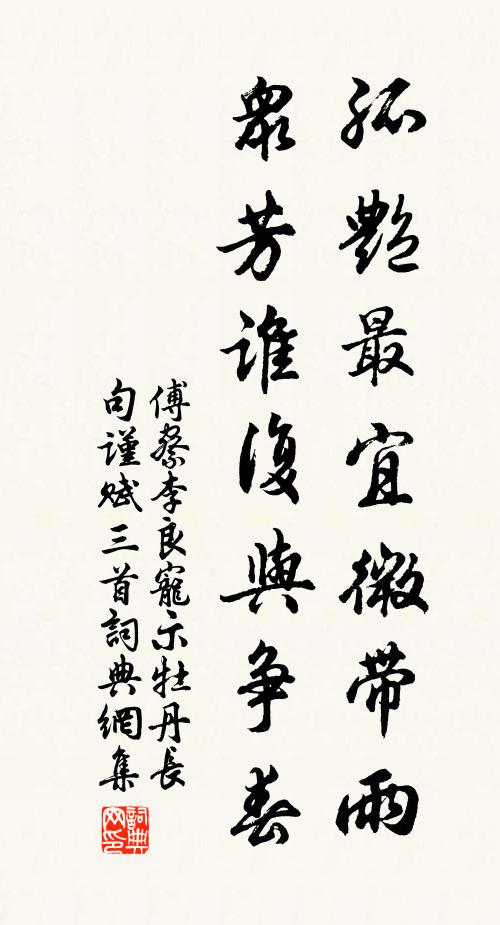 孤艷最宜微带雨
衆芳誰復與争春
傅察李良寵示牡丹長
句謹賦三首詞典網集
詞典網印